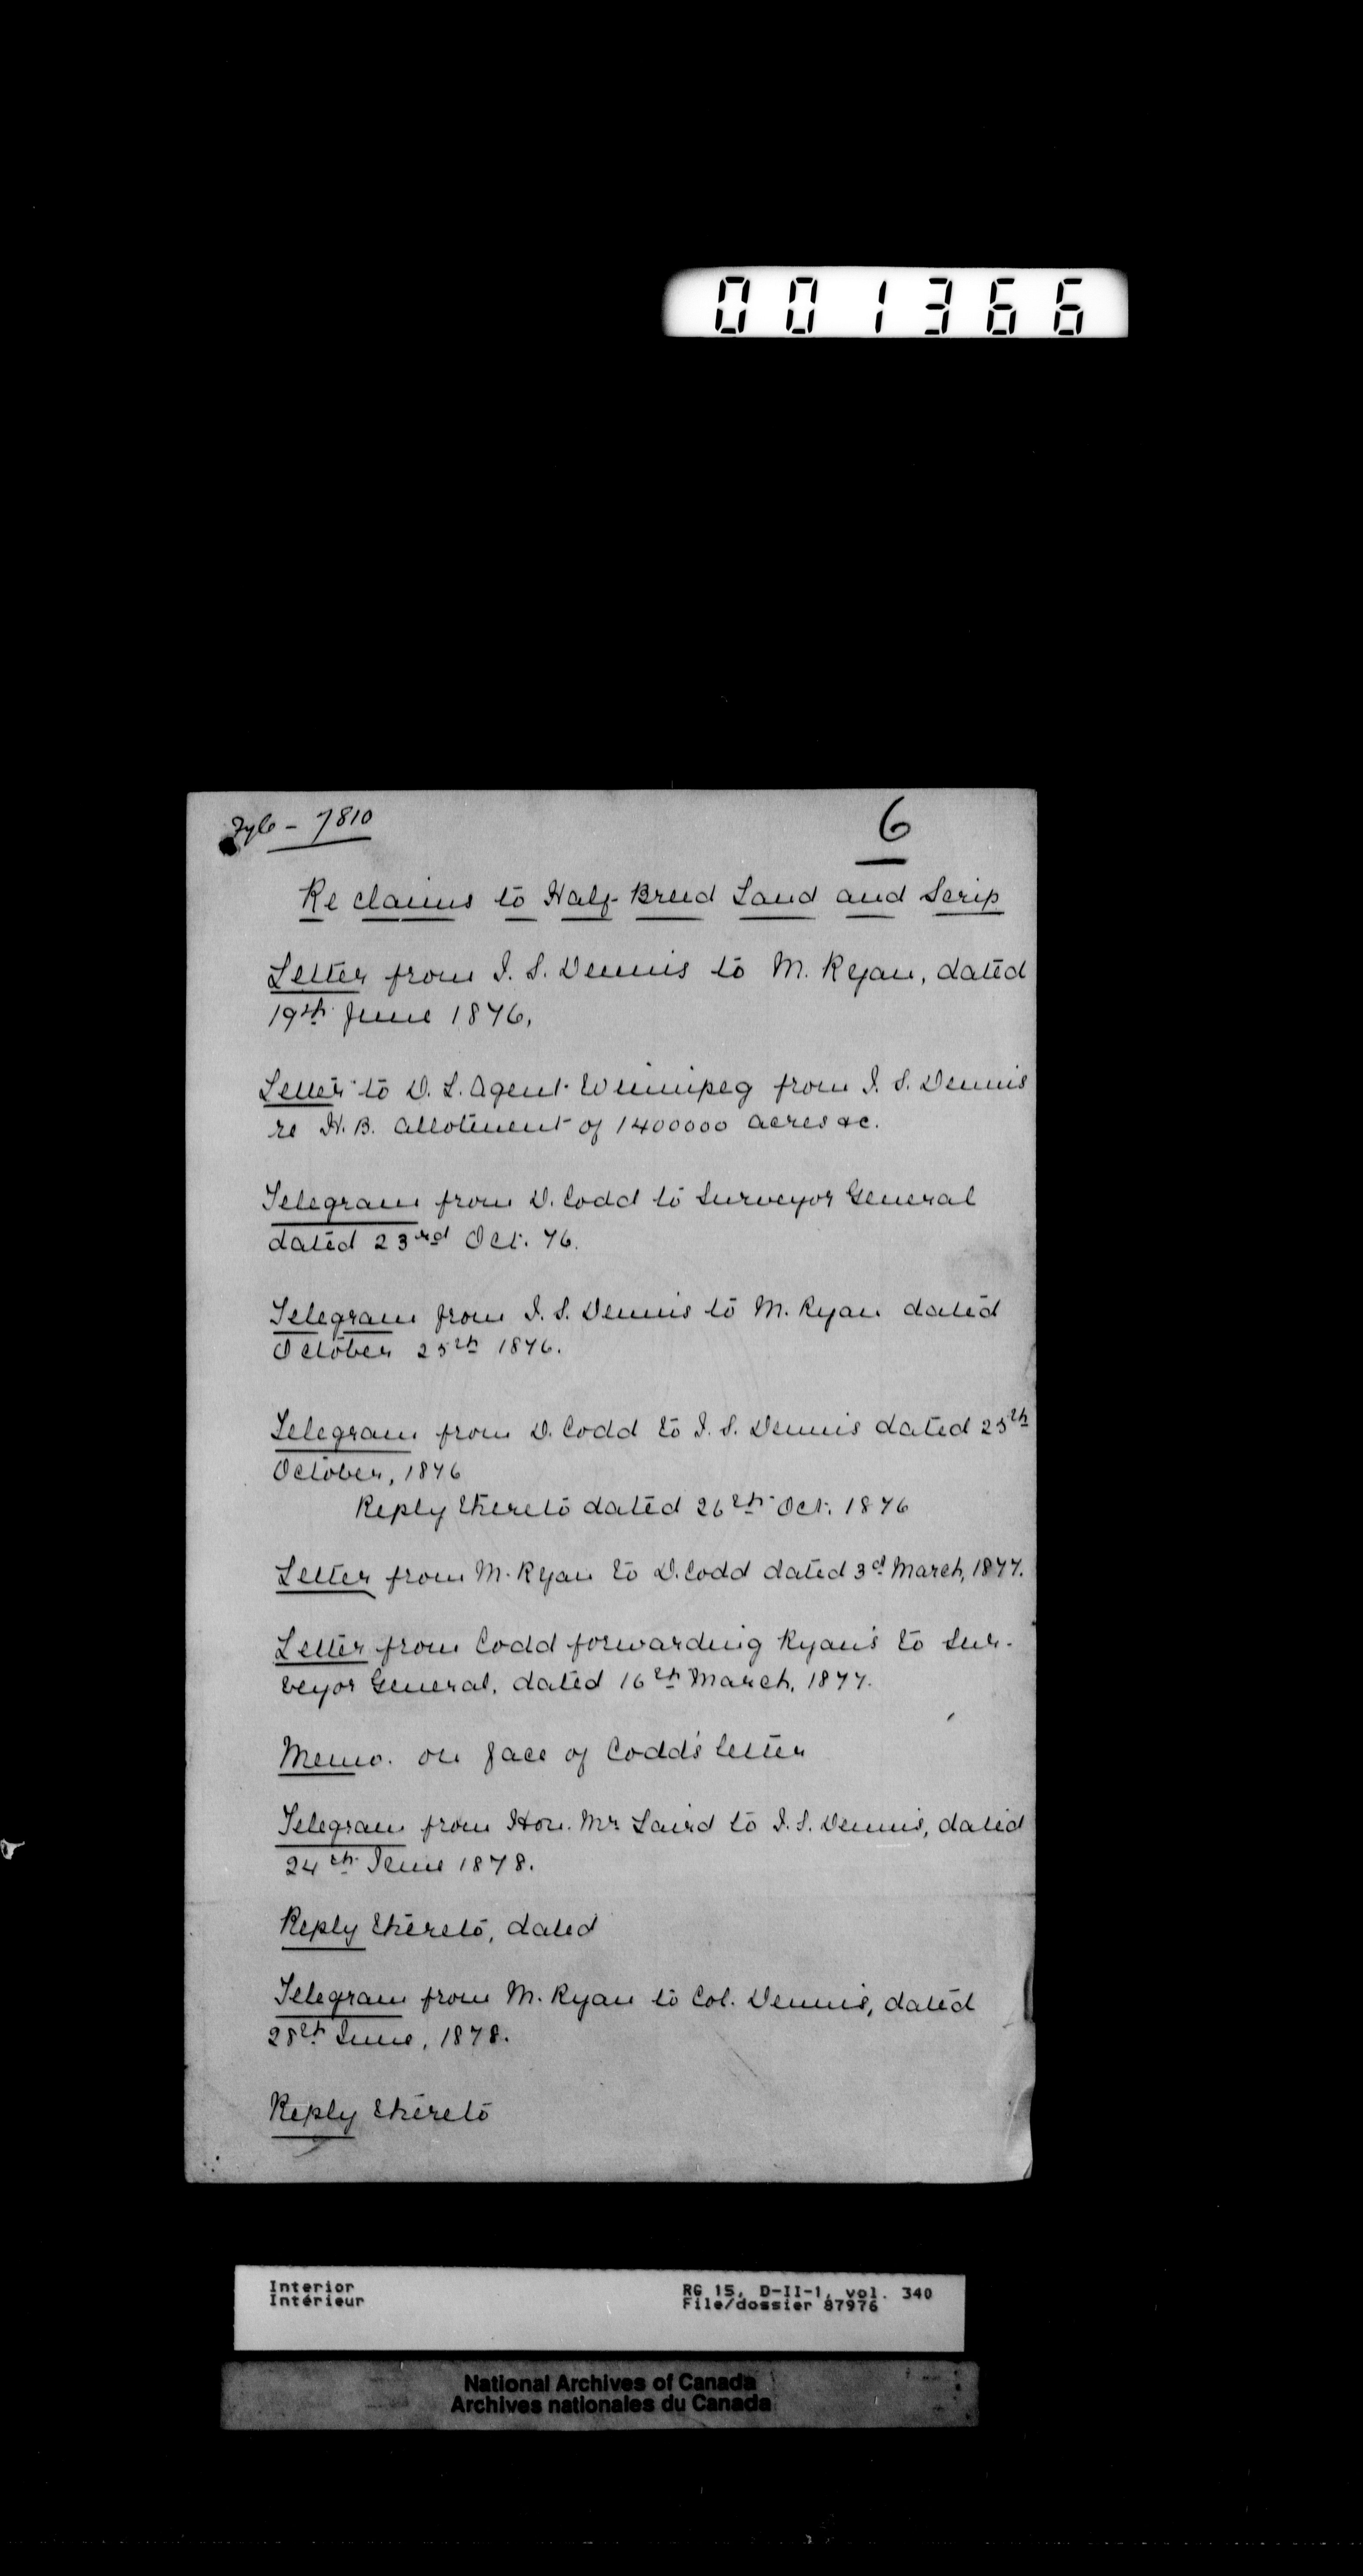 001366
Fyle - 7810
6
Re claims to Half-Breed Land and Scrip
Letter from J. S. Dennis to M. Ryan, dated
19th June 1876,
Letter to D. L. Agent Winnipeg from J. S. Dennis
re H. B. allotment of 1400000 acres &c.
Telegram from D. Codd to Surveyor General
dated 23rd Oct. 76.
Telegram from J. S. Dennis to M. Ryan dated
October 25th 1876.
Telegram from D. Codd to J. S. Dennis dated 25th
October, 1876
Reply thereto dated 26th Oct. 1876
Letter from M. Ryan to D. Codd dated 3d March, 1877.
Letter from Codd forwarding Ryan's to Sur-
veyor General, dated 16th March, 1877.
Memo. on face of Codd's letter
Telegram from Hon. Mr Laird to J. S. Dennis, dated
24th June 1878.
Reply thereto, dated
Telegram from M. Ryan to Col. Dennis, dated
28th June, 1878.
Reply thereto
Interior
Intérieur
RG 15, D-II-1, vol. 340
File/dossier 87976
National Archives of Canada
Archives nationales du Canada